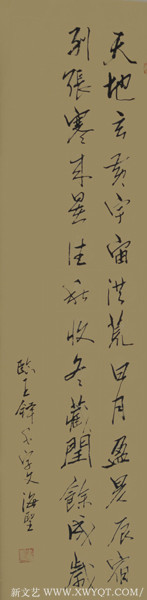 天地玄黄宇宙洪荒日月盈昃辰宿
列張寒来暑往秋收冬藏閏餘成歲
臨王鐸千字文海聖
新文艺（www.XWYQT.com）